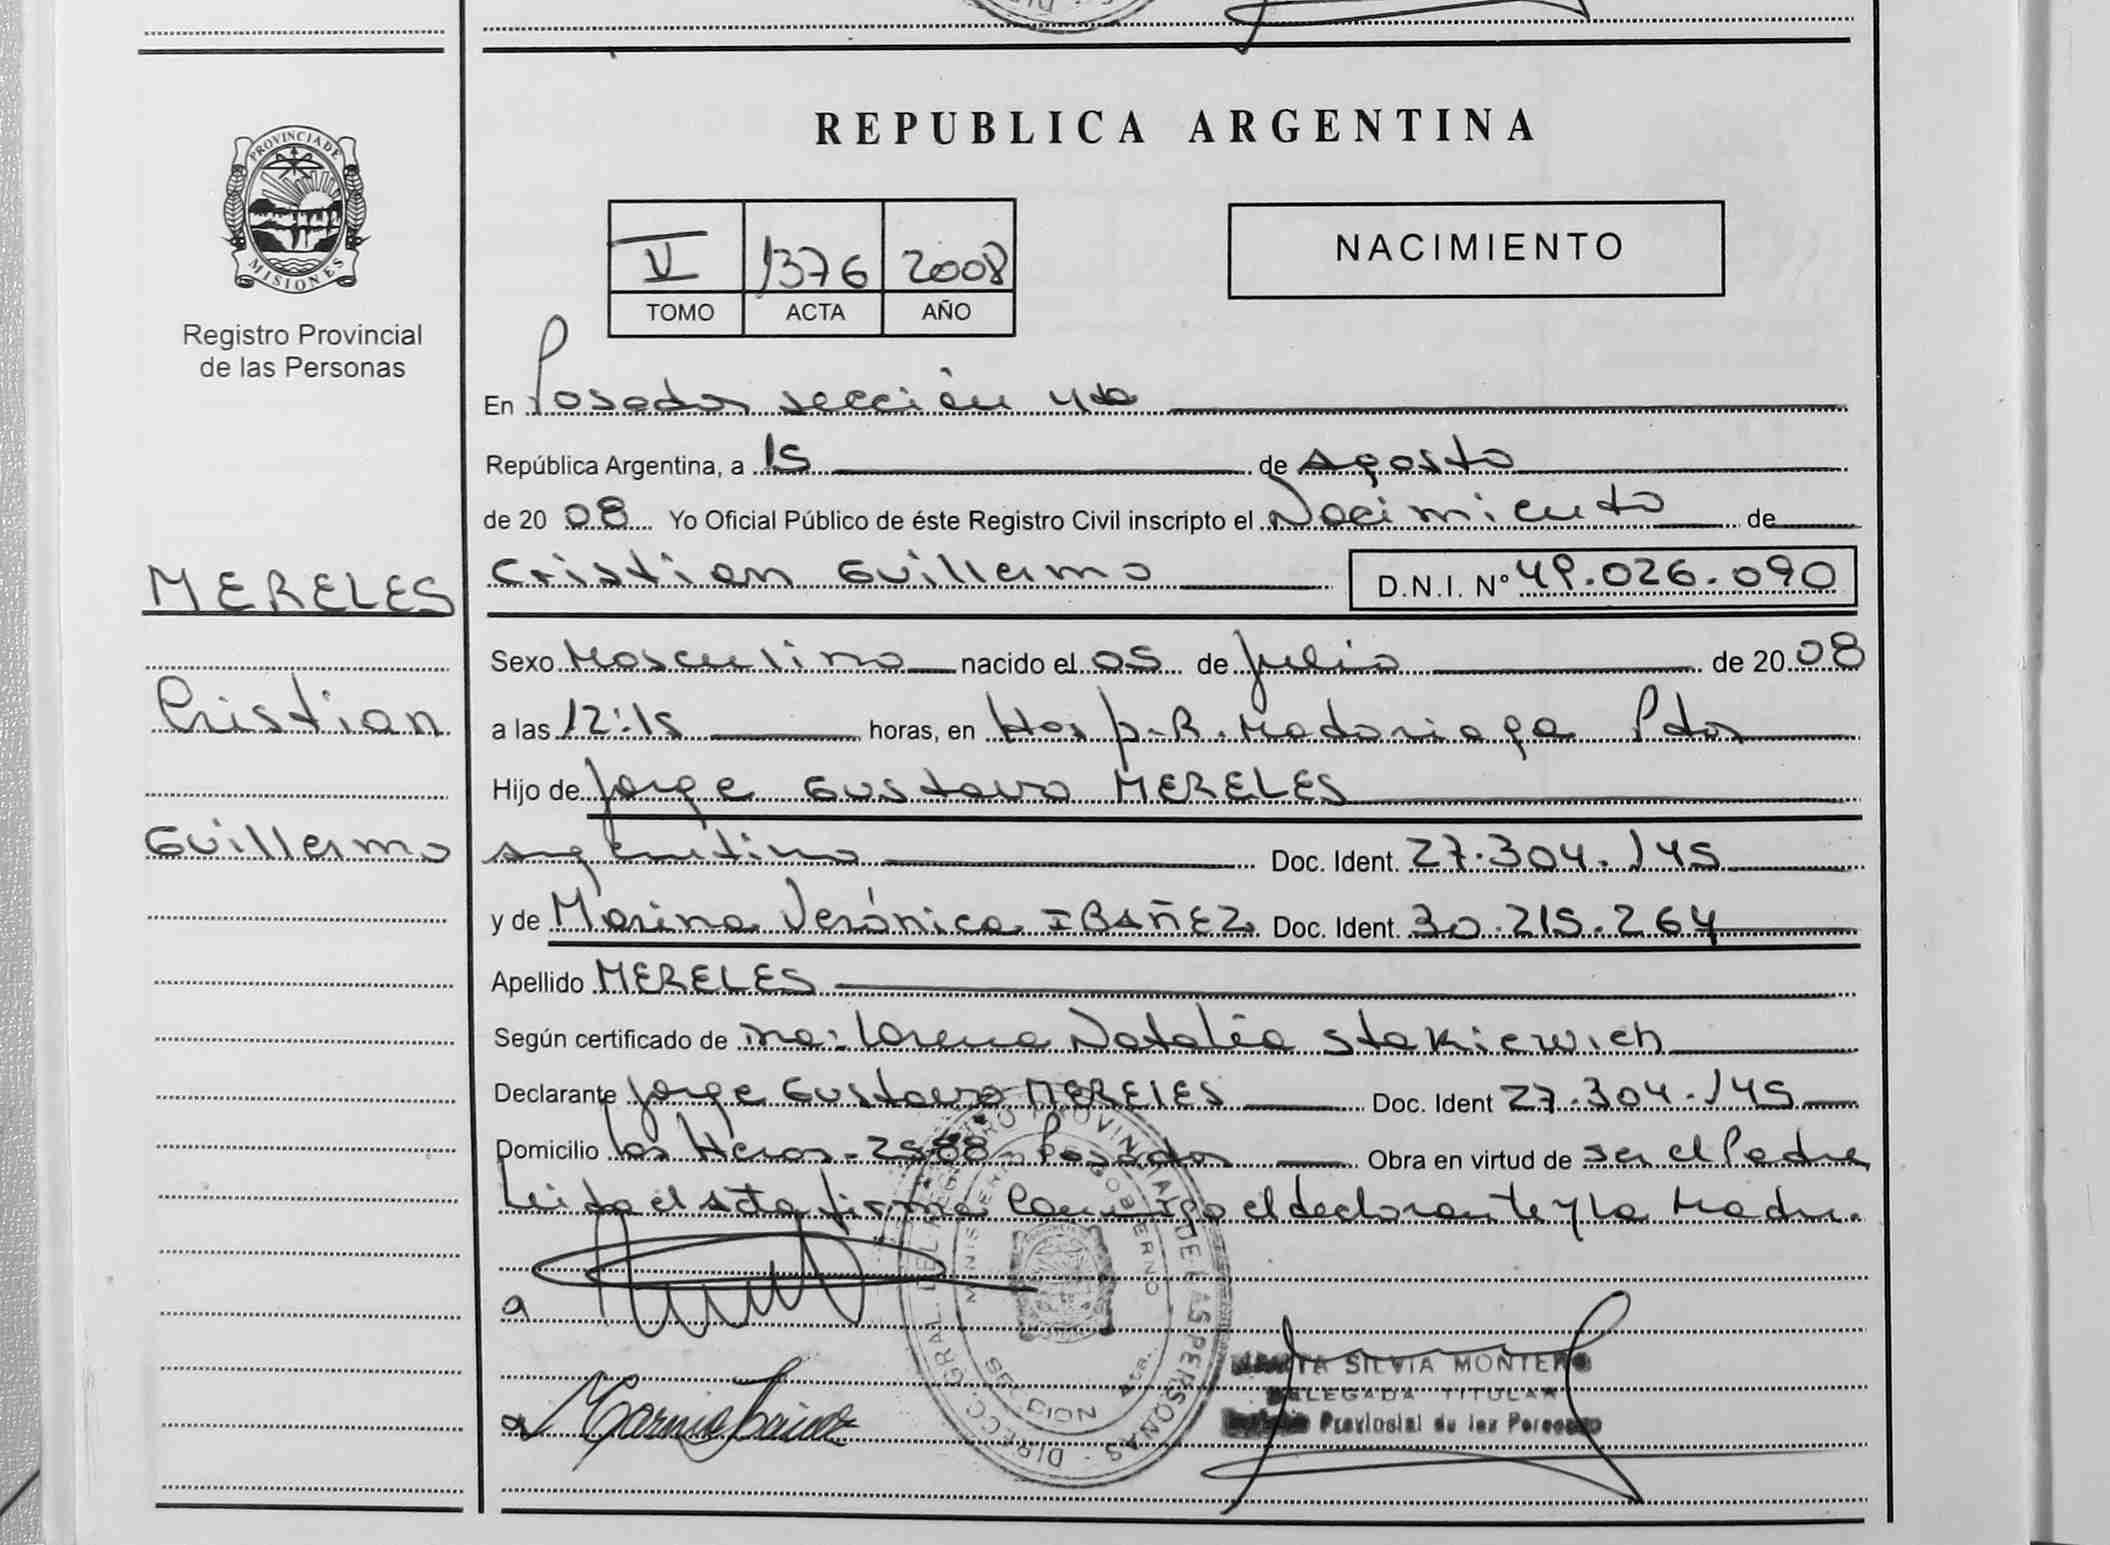 REPUBLICA ARGENTINA
PROVINCIA DE MISIONES
Registro Provincial
de las Personas
V 1376 2008
TOMO ACTA AÑO
NACIMIENTO
En Posadas sección 4ta
República Argentina, a 15 de Agosto
de 20 08 Yo Oficial Público de éste Registro Civil inscripto el Nacimiento de
MERELES
Cristian Guillermo D.N.I. Nº 49.026.090
Sexo Masculino nacido el 05 de Julio de 20 08
Cristian
a las 12:15 horas, en Hosp. R. Madariaga Pdas
Hijo de Jorge Gustavo MERELES
Guillermo
argentino Doc. Ident. 27.304.145
y de Marina Verónica IBAÑEZ Doc. Ident. 30.215.264
Apellido MERELES
Según certificado de Lorena Natalia Stakiewich
Declarante Jorge Gustavo MERELES Doc. Ident 27.304.145
Domicilio Los Heros - 2588 Posadas Obra en virtud de ser el Padre
Leida el Acta firma Conmigo el declarante y la Madre.
DIRECC. GRAL. DEL REGISTRO PROVINCIAL DE LAS PERSONAS
MINISTERIO GOBIERNO
SILVIA MONTERO
DELEGADA TITULAR
Provincial de las Personas